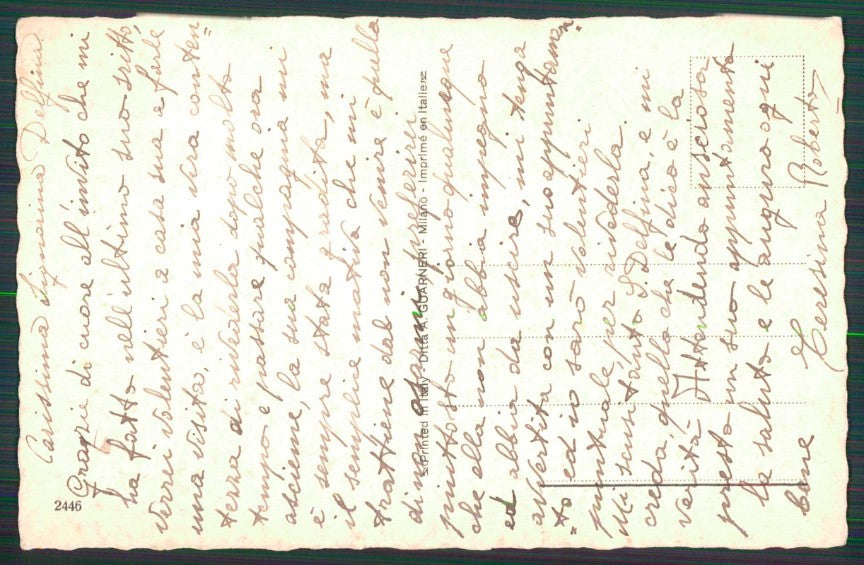 Carissima Signorina Delfina
Grazie di cuore all'invito che mi
ha fatto nell'ultimo suo scritto,
verrei volentieri a casa sua a farle
una visita, è la mia vera conten=
tezza di rivederla dopo molto
tempo e passare qualche ora
assieme, la sua compagnia mi
è sempre stata gradita, ma
il semplice motivo che mi
trattiene dal non venire è quella
di non
piuttosto un giorno qualunque
che ella non abbia impegno
ed abbia da uscire, mi tenga
avvertita con un suo appuntamen=
=to ed io sarò volentieri
puntuale, per rivederla.
Mi scusi tanto S. Delfina, e mi
creda, quello che le dico è la
verità. Attendendo ansciosa
presto un suo appuntamento
la saluto e le auguro ogni
bene
Teresina Roberto
2446
Printed in Italy - Ditta A. GUARNERI - Milano - Imprimé en Italie